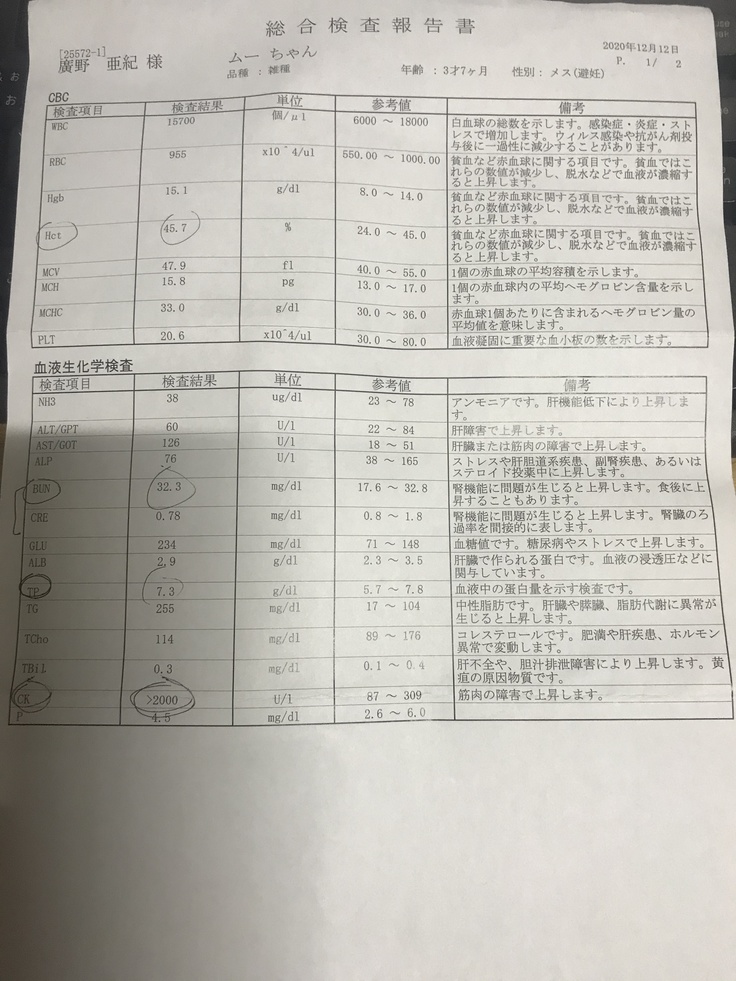 総合検査報告書
[25572-1]
廣野 亜紀 様 ムーちゃん 2020年12月12日
品種 : 雑種 年齢 : 3才7ヶ月 性別 : メス(避妊) P. 1/ 2
CBC
検査項目 検査結果 単位 参考値 備考
WBC 15700 個/μl 6000 ～ 18000 白血球の総数を示します。感染症・炎症・スト
レスで増加します。ウィルス感染や抗がん剤投
与後に一過性に減少することがあります。
RBC 955 x10^4/ul 550.00 ～ 1000.00 貧血など赤血球に関する項目です。貧血ではこ
れらの数値が減少し、脱水などで血液が濃縮す
ると上昇します。
Hgb 15.1 g/dl 8.0 ～ 14.0 貧血など赤血球に関する項目です。貧血ではこ
れらの数値が減少し、脱水などで血液が濃縮す
ると上昇します。
Hct 45.7 % 24.0 ～ 45.0 貧血など赤血球に関する項目です。貧血ではこ
れらの数値が減少し、脱水などで血液が濃縮す
ると上昇します。
MCV 47.9 fl 40.0 ～ 55.0 1個の赤血球の平均容積を示します。
MCH 15.8 pg 13.0 ～ 17.0 1個の赤血球内の平均ヘモグロビン含量を示し
ます。
MCHC 33.0 g/dl 30.0 ～ 36.0 赤血球1個あたりに含まれるヘモグロビン量の
平均値を意味します。
PLT 20.6 x10^4/ul 30.0 ～ 80.0 血液凝固に重要な血小板の数を示します。
血液生化学検査
検査項目 検査結果 単位 参考値 備考
NH3 38 ug/dl 23 ～ 78 アンモニアです。肝機能低下により上昇しま
す。
ALT/GPT 60 U/l 22 ～ 84 肝障害で上昇します。
AST/GOT 126 U/l 18 ～ 51 肝臓または筋肉の障害で上昇します。
ALP 76 U/l 38 ～ 165 ストレスや肝胆道系疾患、副腎疾患、あるいは
ステロイド投薬中に上昇します。
BUN 32.3 mg/dl 17.6 ～ 32.8 腎機能に問題が生じると上昇します。食後に上
昇することもあります。
CRE 0.78 mg/dl 0.8 ～ 1.8 腎機能に問題が生じると上昇します。腎臓のろ
過率を間接的に表します。
GLU 234 mg/dl 71 ～ 148 血糖値です。糖尿病やストレスで上昇します。
ALB 2.9 g/dl 2.3 ～ 3.5 肝臓で作られる蛋白です。血液の浸透圧などに
関与しています。
TP 7.3 g/dl 5.7 ～ 7.8 血液中の蛋白量を示す検査です。
TG 255 mg/dl 17 ～ 104 中性脂肪です。肝臓や膵臓、脂肪代謝に異常が
生じると上昇します。
TCho 114 mg/dl 89 ～ 176 コレステロールです。肥満や肝疾患、ホルモン
異常で変動します。
TBiL 0.3 mg/dl 0.1 ～ 0.4 肝不全や、胆汁排泄障害により上昇します。黄
疸の原因物質です。
CK >2000 U/l 87 ～ 309 筋肉の障害で上昇します。
P 4.5 mg/dl 2.6 ～ 6.0